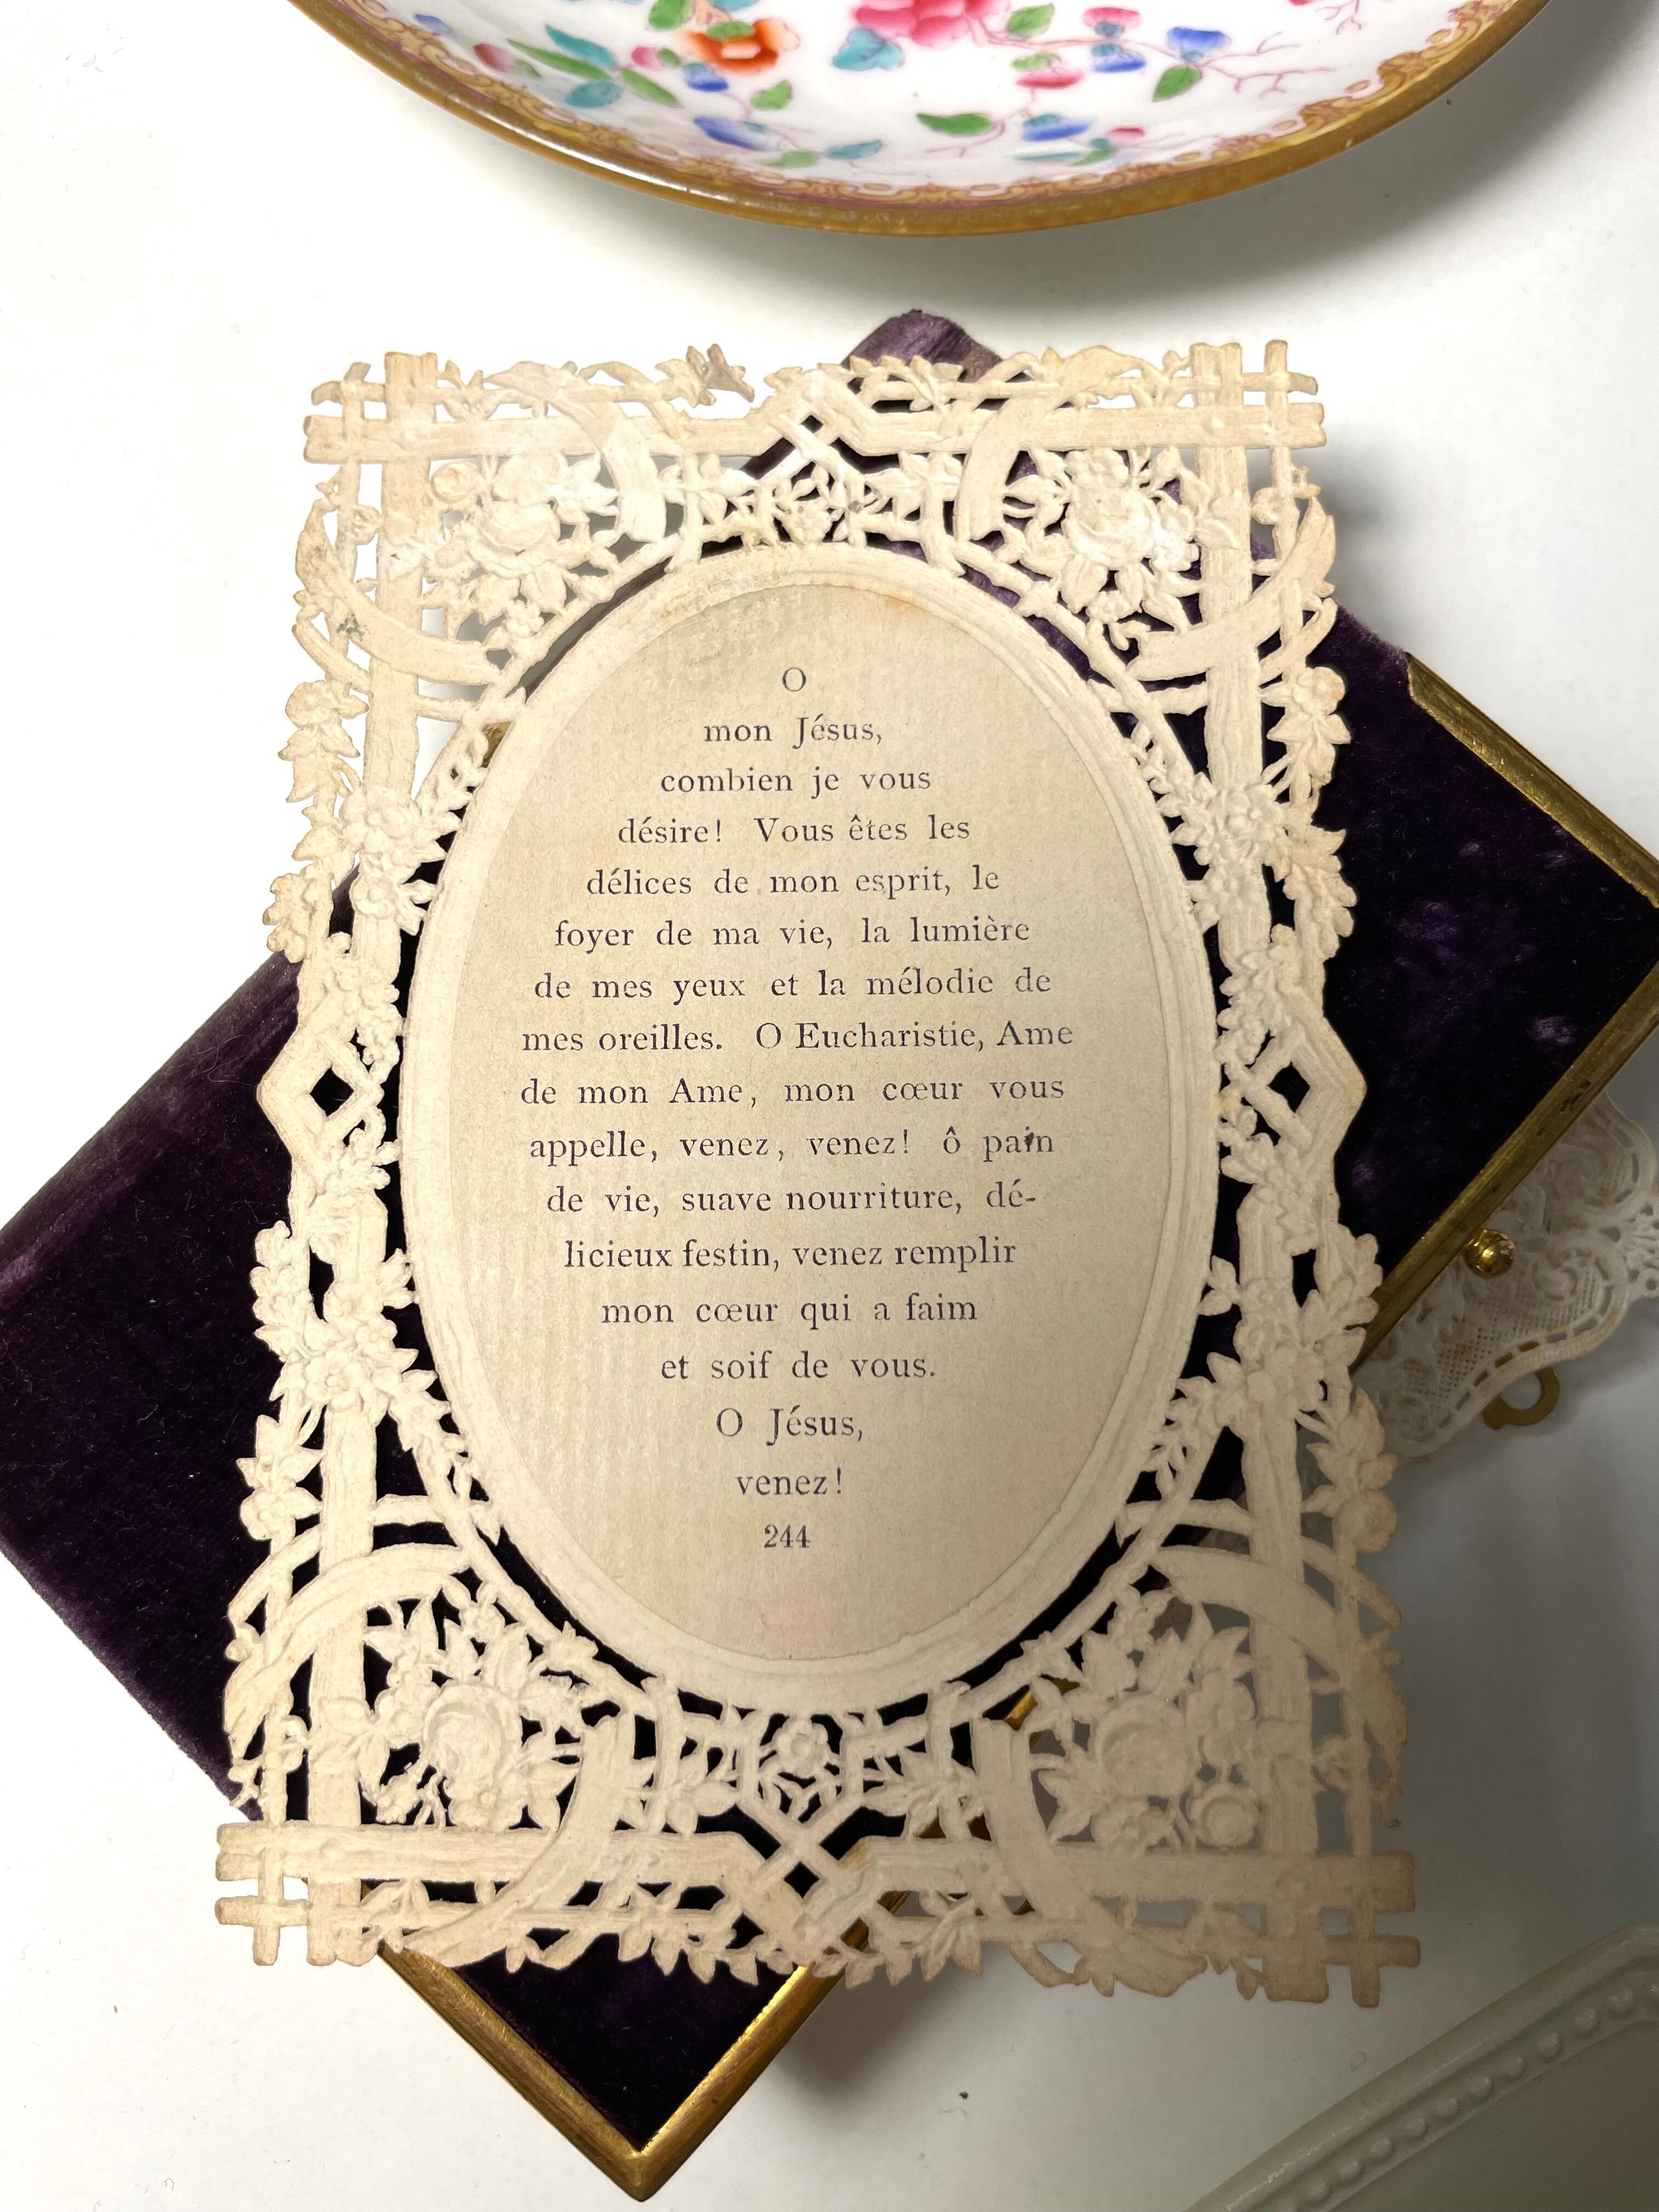 O
mon Jésus,
combien je vous
désire! Vous êtes les
délices de mon esprit, le
foyer de ma vie, la lumière
de mes yeux et la mélodie de
mes oreilles. O Eucharistie, Ame
de mon Ame, mon cœur vous
appelle, venez, venez! ô pain
de vie, suave nourriture, dé-
licieux festin, venez remplir
mon cœur qui a faim
et soif de vous.
O Jésus,
venez!
244